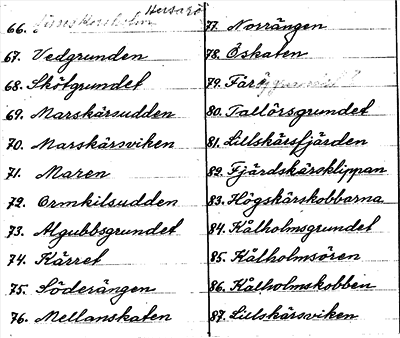 66.
67. Vedgrunden
68. Skötgrundet
69. Marskärsudden
70. Marskärsviken
71. Maren
72. Ormkilsudden
73. Algubbsgrundet
74. Kärret
75. Söderängen
76. Mellanskaten
77. Norrängen
78. Öskaten
79.
80. Tallörsgrundet
81. Lillskärsfjärden
82. Fjärdskärsklippan
83. Högskärskobbarna
84. Kålholmsgrundet
85. Kålholmsören
86. Kålholmskobben
87. Lillskärsviken